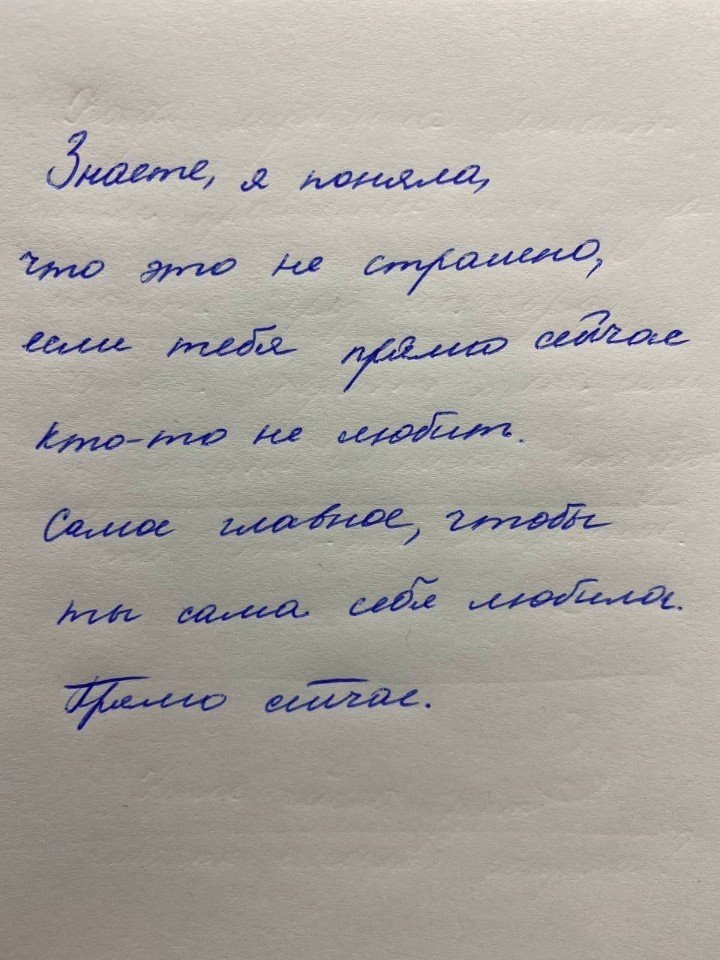 Знаете, я поняла,
что это не страшно,
если тебя прямо сейчас
кто-то не любит.
Самое главное, чтобы
ты сама себя любила.
Прямо сейчас.